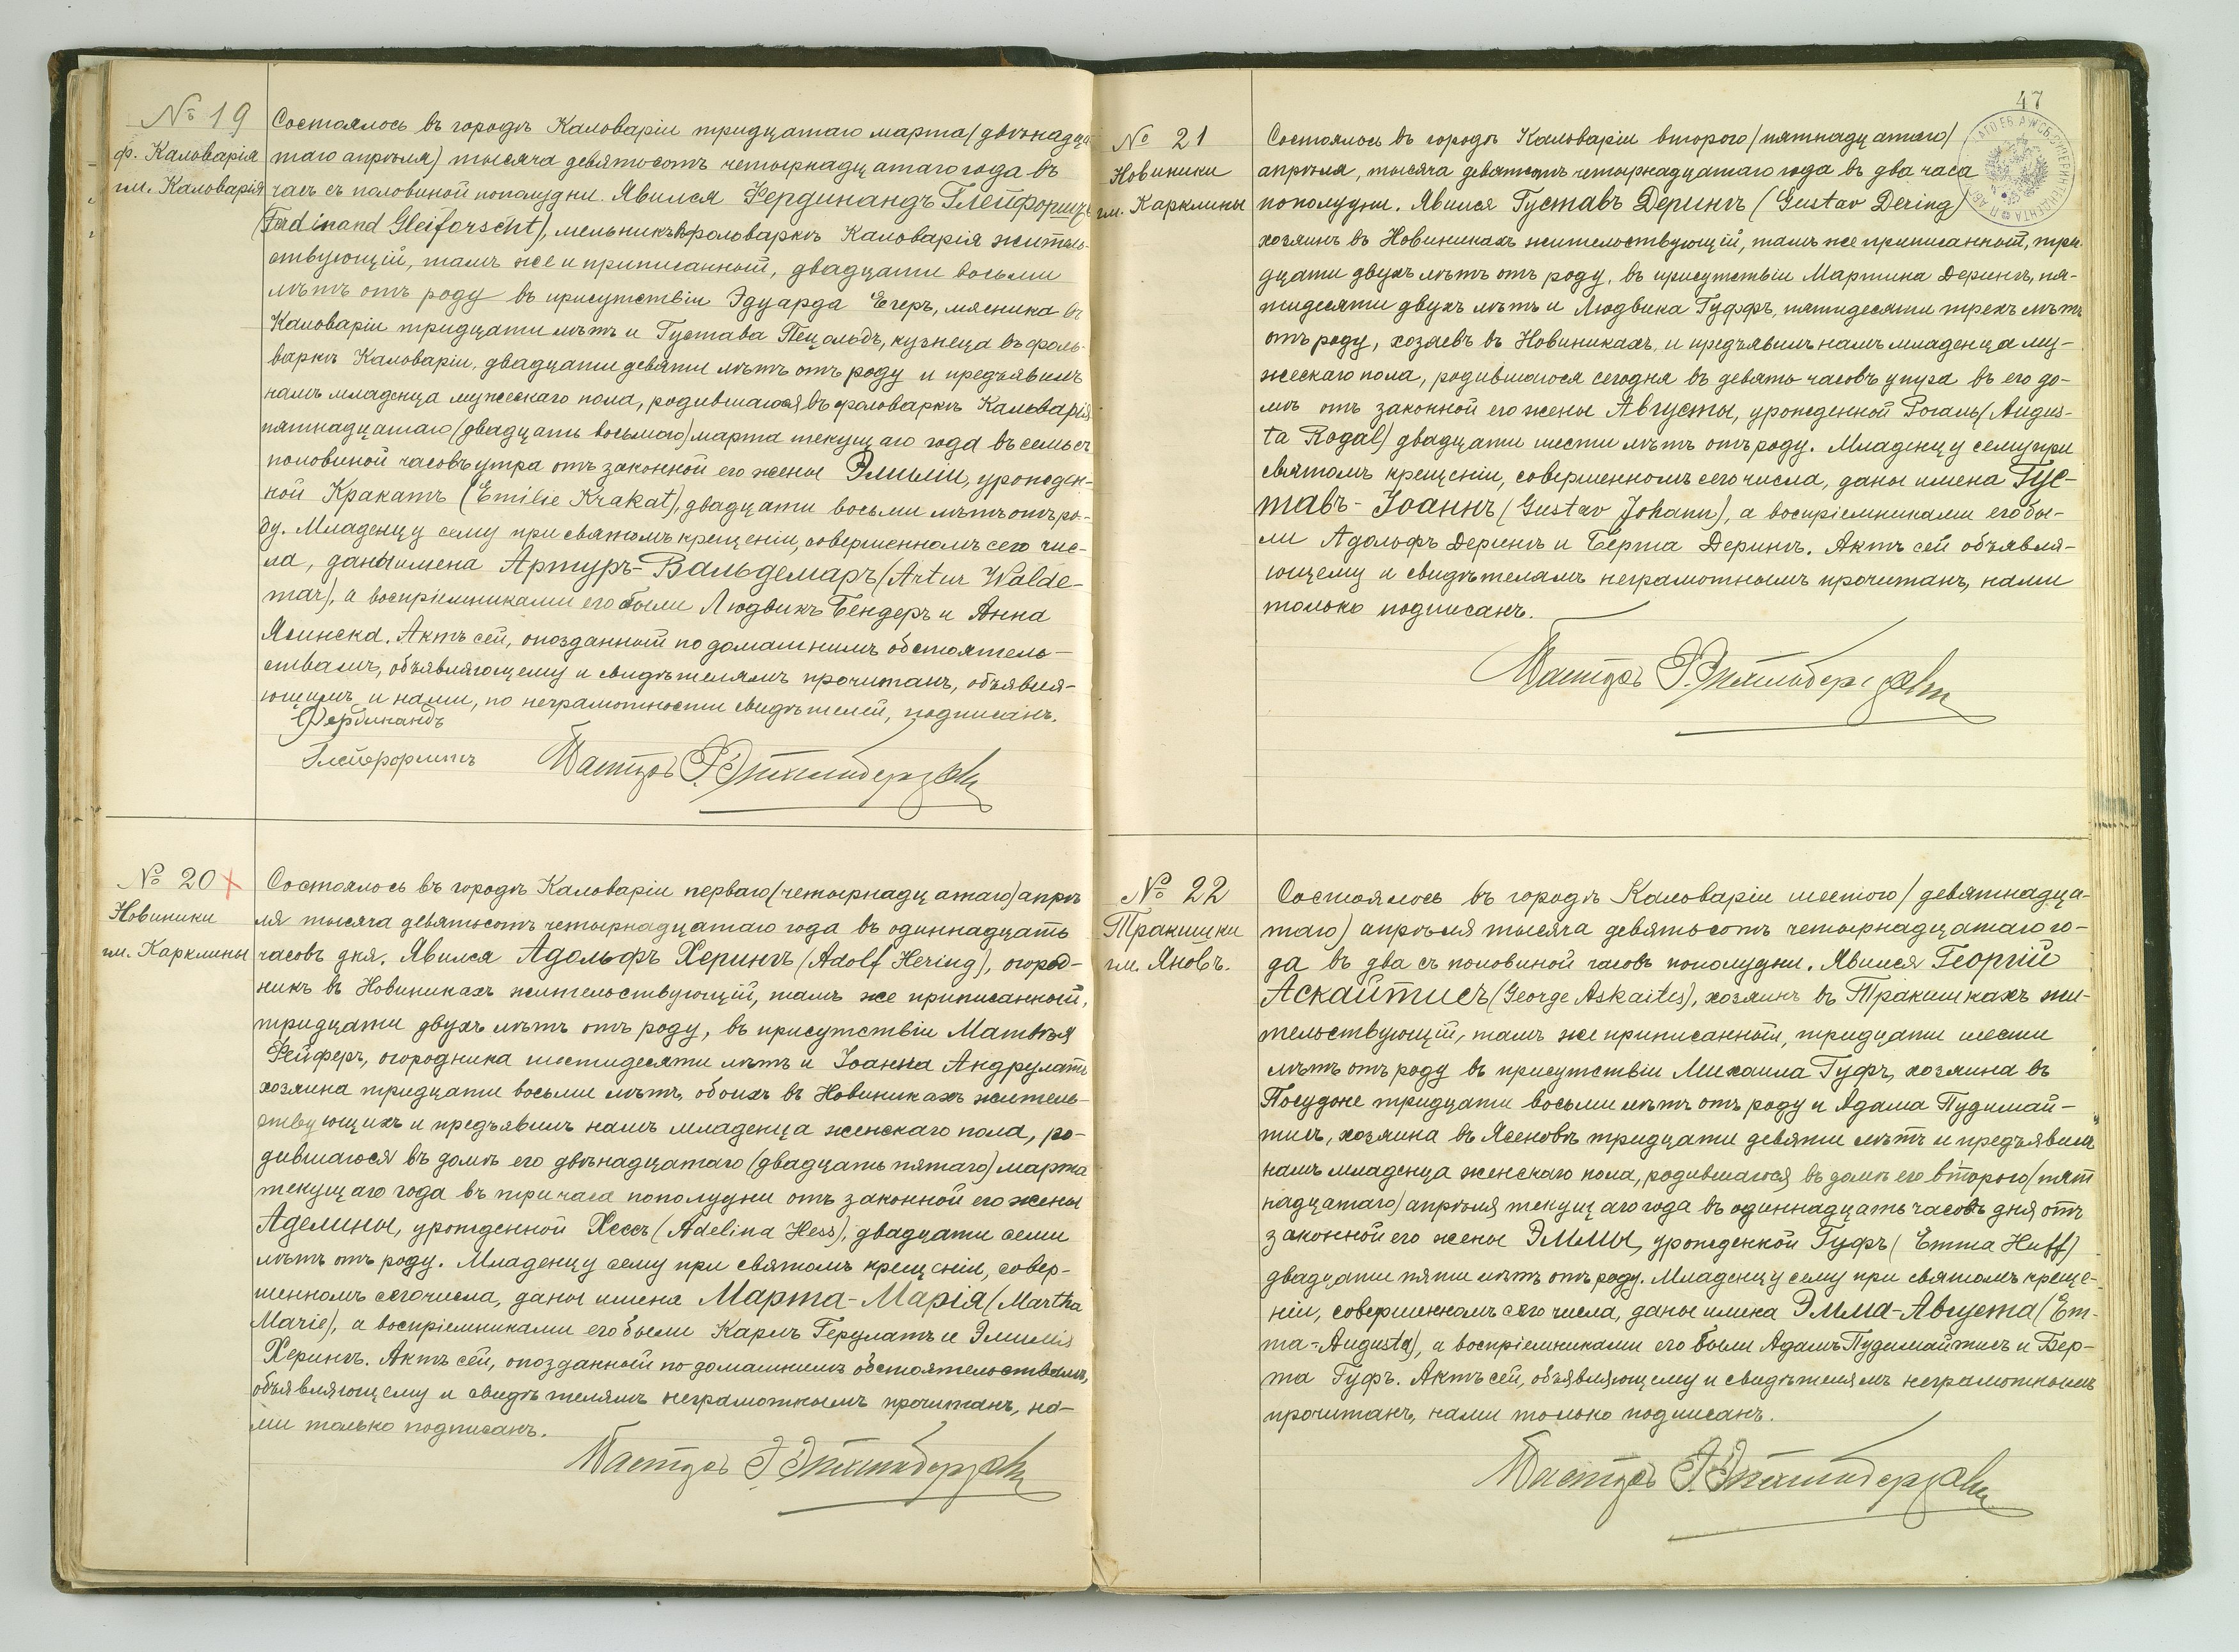 № 19
ф. Кальварія
гм. Кальварія
Состоялось въ городѣ Кальваріи тридцатаго марта (двѣнадца
таго апрѣля) тысяча девятьсотъ четырнадцатаго года въ
часъ съ половиной пополудни. Явился Фердинандъ Глейфоршт
(Ferdinand Gleiforscht), мельникъ въ фольваркѣ Кальварія житель-
ствующій, тамъ же и приписанный, двадцати восьми
лѣтъ отъ роду въ присутствіи Эдуарда Егеръ, мясника въ
Кальваріи тридцати лѣтъ и Густава Пецольдъ, кузнеца въ фоль-
варкѣ Кальваріи, двадцати девяти лѣтъ отъ роду и предъявилъ
намъ младенца мужескаго пола, родившагося въ фольваркѣ Кальварія
пятнадцатаго (двадцать восьмого) марта текущаго года въ семь съ
половиной часовъ утра отъ законной его жены Эмиліи, урожден-
ной Кракатъ (Emilie Krakat), двадцати восьми лѣтъ отъ ро-
ду. Младенцу сему при святомъ крещеніи, совершенномъ сего чис-
ла, даны имена Артуръ-Вальдемаръ (Artur Walde-
mar), а воспріемниками его были Людвикъ Бендеръ и Анна
Ясинска. Актъ сей, опозданный по домашнимъ обстоятель-
ствамъ, объявляющему и свидѣтелямъ прочитанъ, объявля-
ющимъ и нами, по неграмотности свидѣтелей, подписанъ.
Фердинандъ
Глейфорштъ
Пасторъ
№ 20 x
Новиники
гм. Карклины
Состоялось въ городѣ Кальваріи перваго (четырнадцатаго) апрѣ
ля тысяча девятьсотъ четырнадцатаго года въ одиннадцать
часовъ дня. Явился Адольфъ Херингъ (Adolf Hering), огород-
никъ въ Новиникахъ жительствующій, тамъ же приписанный,
тридцати двухъ лѣтъ отъ роду, въ присутствіи Матвѣя
Фейферъ, огородника шестидесяти лѣтъ и Іоанна Андрулатъ
хозяина тридцати восьми лѣтъ, обоихъ въ Новиникахъ житель-
ствующихъ и предъявилъ намъ младенца женскаго пола, ро-
дившагося въ домѣ его двѣнадцатаго (двадцать пятаго) марта
текущаго года въ три часа пополудни отъ законной его жены
Аделины, урожденной Хессъ (Adelina Hess), двадцати семи
лѣтъ отъ роду. Младенцу сему при святомъ крещеніи, совер-
шенномъ сего числа, даны имена Марта-Марія (Martha
Marie), а воспріемниками его были Карлъ Герулатъ и Эмилія
Херингъ. Актъ сей, опозданный по домашнимъ обстоятельствамъ,
объявляющему и свидѣтелямъ неграмотнымъ прочитанъ, на-
ми только подписанъ.
Пасторъ
47
№ 21
Новиники
гм. Карклины
Состоялось въ городѣ Кальваріи второго (пятнадцатаго)
апрѣля, тысяча девятьсотъ четырнадцатаго года въ два часа
пополудни. Явился Густавъ Дерингъ (Gustav Dering)
хозяинъ въ Новиникахъ жительствующій, тамъ же приписанный, три-
дцати двухъ лѣтъ отъ роду, въ присутствіи Мартина Дерингъ, пя-
тидесяти двухъ лѣтъ и Людвика Гуффъ, пятидесяти трехъ лѣтъ
отъ роду, хозяевъ въ Новиникахъ, и предъявилъ намъ младенца му-
жескаго пола, родившагося сегодня въ девять часовъ утра въ его до-
мѣ отъ законной его жены Августы, урожденной Рогаль (Augus-
ta Rogal) двадцати шести лѣтъ отъ роду. Младенцу сему при
святомъ крещеніи, совершенномъ сего числа, даны имена Гус-
тавъ-Іоаннъ (Gustav Johann), а воспріемниками его бы-
ли Адольфъ Дерингъ и Берта Дерингъ. Актъ сей объявля-
ющему и свидѣтелямъ неграмотнымъ прочитанъ, нами
только подписанъ.
Пасторъ
№ 22
Тракишки
гм. Яновъ.
Состоялось въ городѣ Кальваріи шестого (девятнадца-
таго) апрѣля тысяча девятьсотъ четырнадцатаго го-
да въ два съ половиной часовъ пополудни. Явился Георгій
Аскайтисъ (George Askaites), хозяинъ въ Тракишкахъ жи-
тельствующій, тамъ же приписанный, тридцати шести
лѣтъ отъ роду въ присутствіи Михаила Гуфъ, хозяина въ
Посудоне тридцати восьми лѣтъ отъ роду и Адама Пудимай-
тисъ, хозяина въ Ясеновѣ тридцати девяти лѣтъ и предъявилъ
намъ младенца женскаго пола, родившагося въ домѣ его второго (пят
надцатаго) апрѣля текущаго года въ одиннадцать часовъ дня отъ
законной его жены Эммы, урожденной Гуфъ (Emma Huff)
двадцати пяти лѣтъ отъ роду. Младенцу сему при святомъ креще-
ніи, совершенномъ сего числа, даны имена Эмма-Августа (Em-
ma-Augusta), а воспріемниками его были Адамъ Пудимайтисъ и Бер-
та Гуфъ. Актъ сей, объявляющему и свидѣтелямъ неграмотнымъ
прочитанъ, нами только подписанъ.
Пасторъ